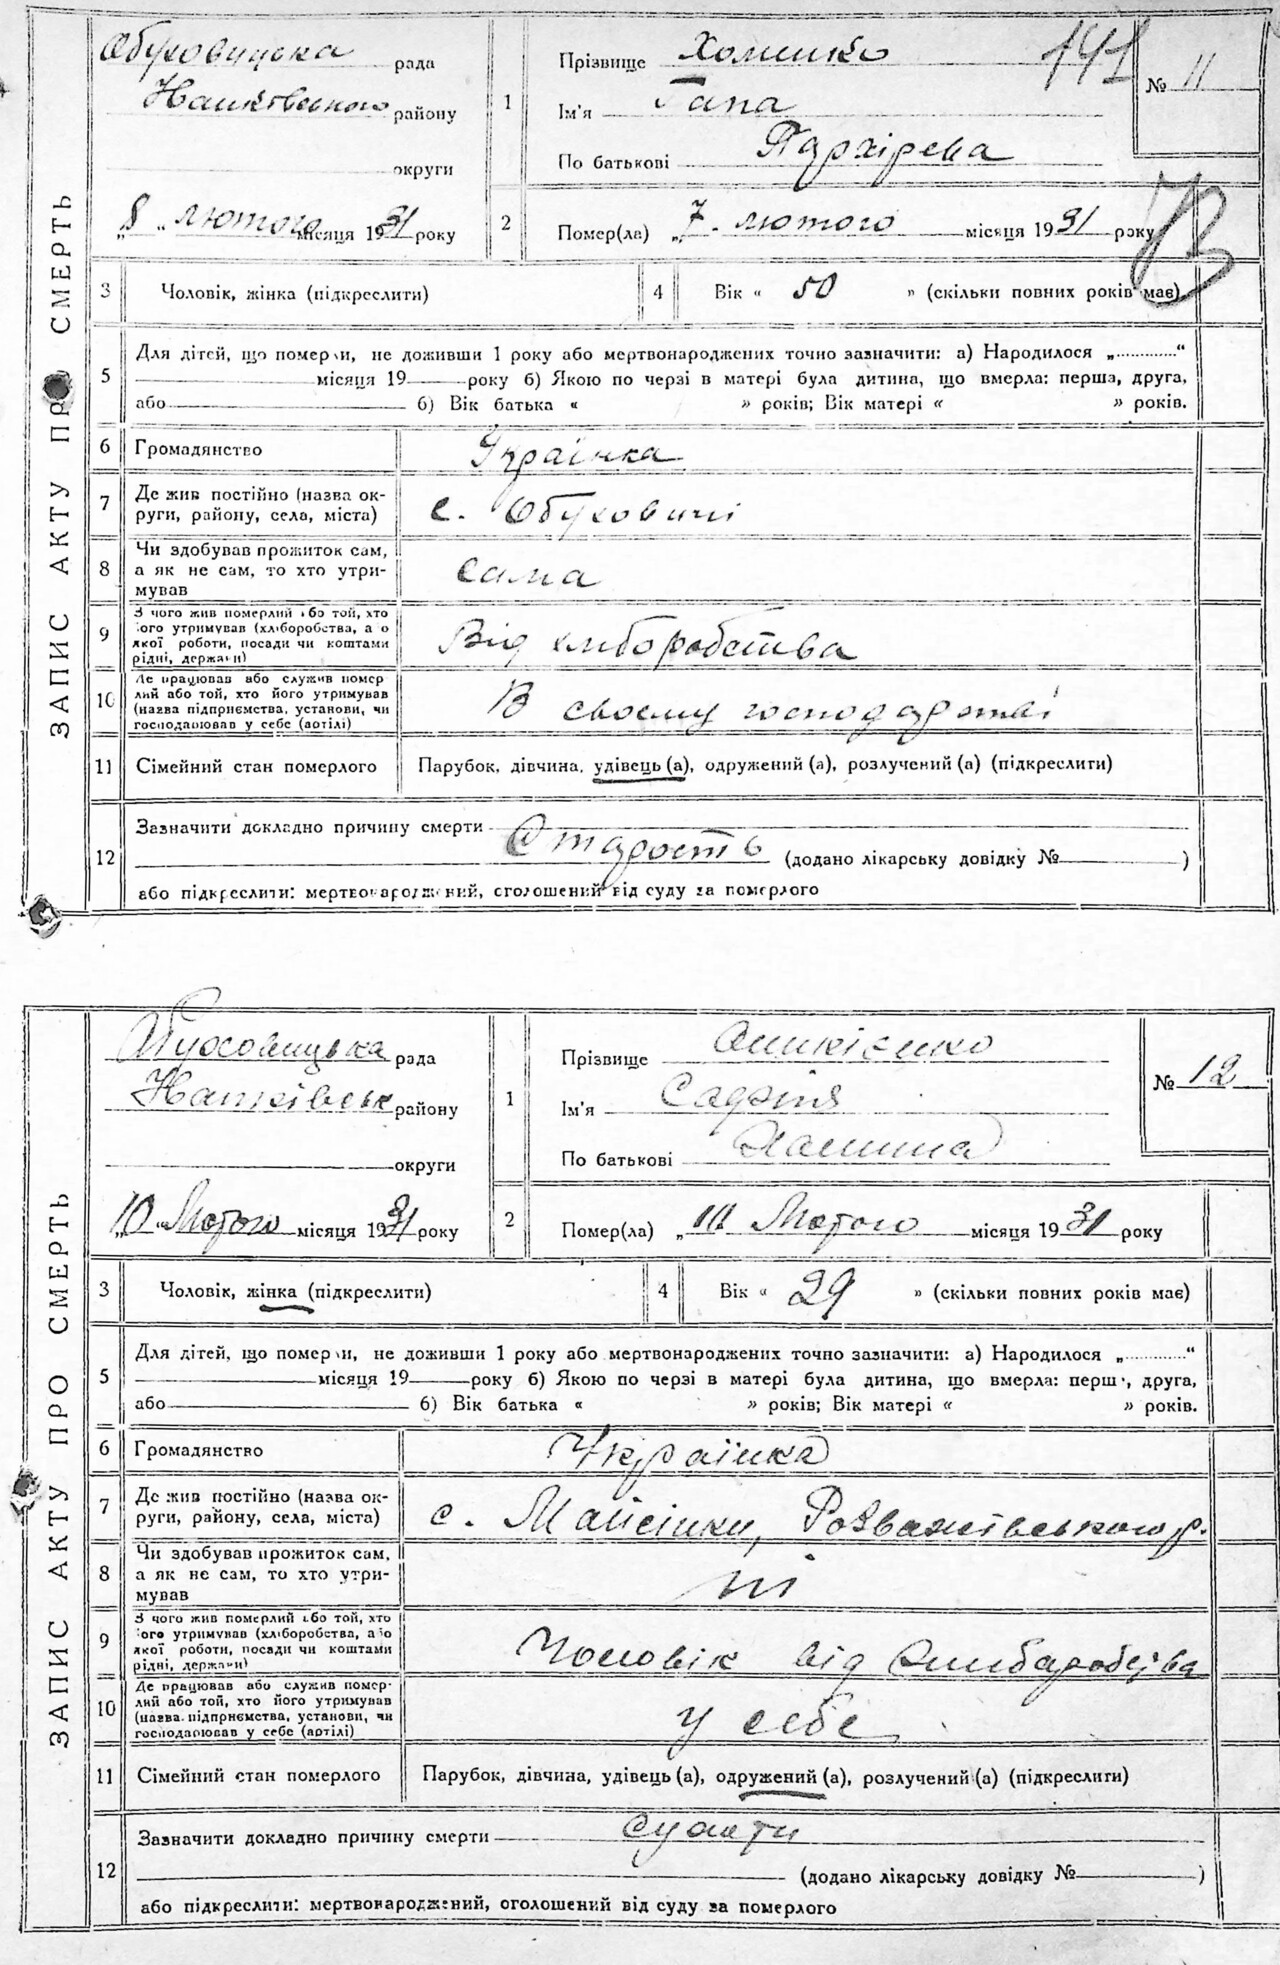 ЗАПИС АКТУ ПРО СМЕРТЬ
Обуховицька рада
району
округи
„8" лютого місяця 1931 року
1
Прізвище Хоменко
Ім'я Гапа
По батькові
141
№ 11
2
Помер(ла) „7" лютого місяця 1931 року
73
3 Чоловік, жінка (підкреслити)
4 Вік « 50 » (скільки повних років має)
5 Для дітей, що померли, не доживши 1 року або мертвонароджених точно зазначити: а) Народилося „............“
місяця 19 року б) Якою по черзі в матері була дитина, що вмерла: перша, друга,
або б) Вік батька « » років; Вік матері « » років.
6 Громадянство Українка
7 Де жив постійно (назва ок-
руги, району, села, міста) с. Обуховичі
8 Чи здобував прожиток сам,
а як не сам, то хто утри-
мував сама
9 З чого жив померлий або той, хто
його утримував (хліборобства, або
якої роботи, посади чи коштами
рідні, держави) Від хліборобства
10 Де працював або служив помер-
лий або той, хто його утримував
(назва підприємства, установи, чи
господарював у себе (артілі) В своему господарстві
11 Сімейний стан померлого Парубок, дівчина, удівець (а), одружений (а), розлучений (а) (підкреслити)
12 Зазначити докладно причину смерти Старость
(додано лікарську довідку № )
або підкреслити: мертвонароджений, оголошений від суду за померлого
ЗАПИС АКТУ ПРО СМЕРТЬ
Обуховицька рада
району
округи
„10" Лютого місяця 1931 року
1
Прізвище
Ім'я
По батькові
№ 12
2
Помер(ла) „ Лютого місяця 1931 року
3 Чоловік, жінка (підкреслити)
4 Вік « 29 » (скільки повних років має)
5 Для дітей, що померли, не доживши 1 року або мертвонароджених точно зазначити: а) Народилося „............“
місяця 19 року б) Якою по черзі в матері була дитина, що вмерла: перша, друга,
або б) Вік батька « » років; Вік матері « » років.
6 Громадянство Українка
7 Де жив постійно (назва ок-
руги, району, села, міста) с. Розважівського р.
8 Чи здобував прожиток сам,
а як не сам, то хто утри-
мував ні
9 З чого жив померлий або той, хто
його утримував (хліборобства, або
якої роботи, посади чи коштами
рідні, держави) Чоловік від
10 Де працював або служив помер-
лий або той, хто його утримував
(назва підприємства, установи, чи
господарював у себе (артілі) у себе
11 Сімейний стан померлого Парубок, дівчина, удівець (а), одружений (а), розлучений (а) (підкреслити)
12 Зазначити докладно причину смерти
(додано лікарську довідку № )
або підкреслити: мертвонароджений, оголошений від суду за померлого